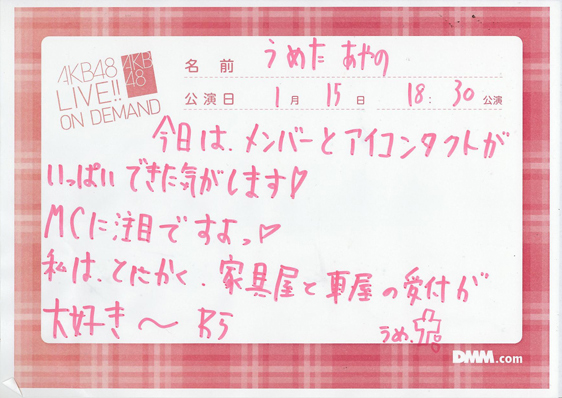 AKB48
LIVE!!
ON DEMAND
AKB
48
名前 うめた あやの
公演日 1月 15日 18:30公演
今日は、メンバーとアイコンタクトが
いっぱいできた気がします♡
MCに注目ですよっ♡
私は、とにかく、家具屋と車屋の受付が
大好き〜
うめ。
DMM.com